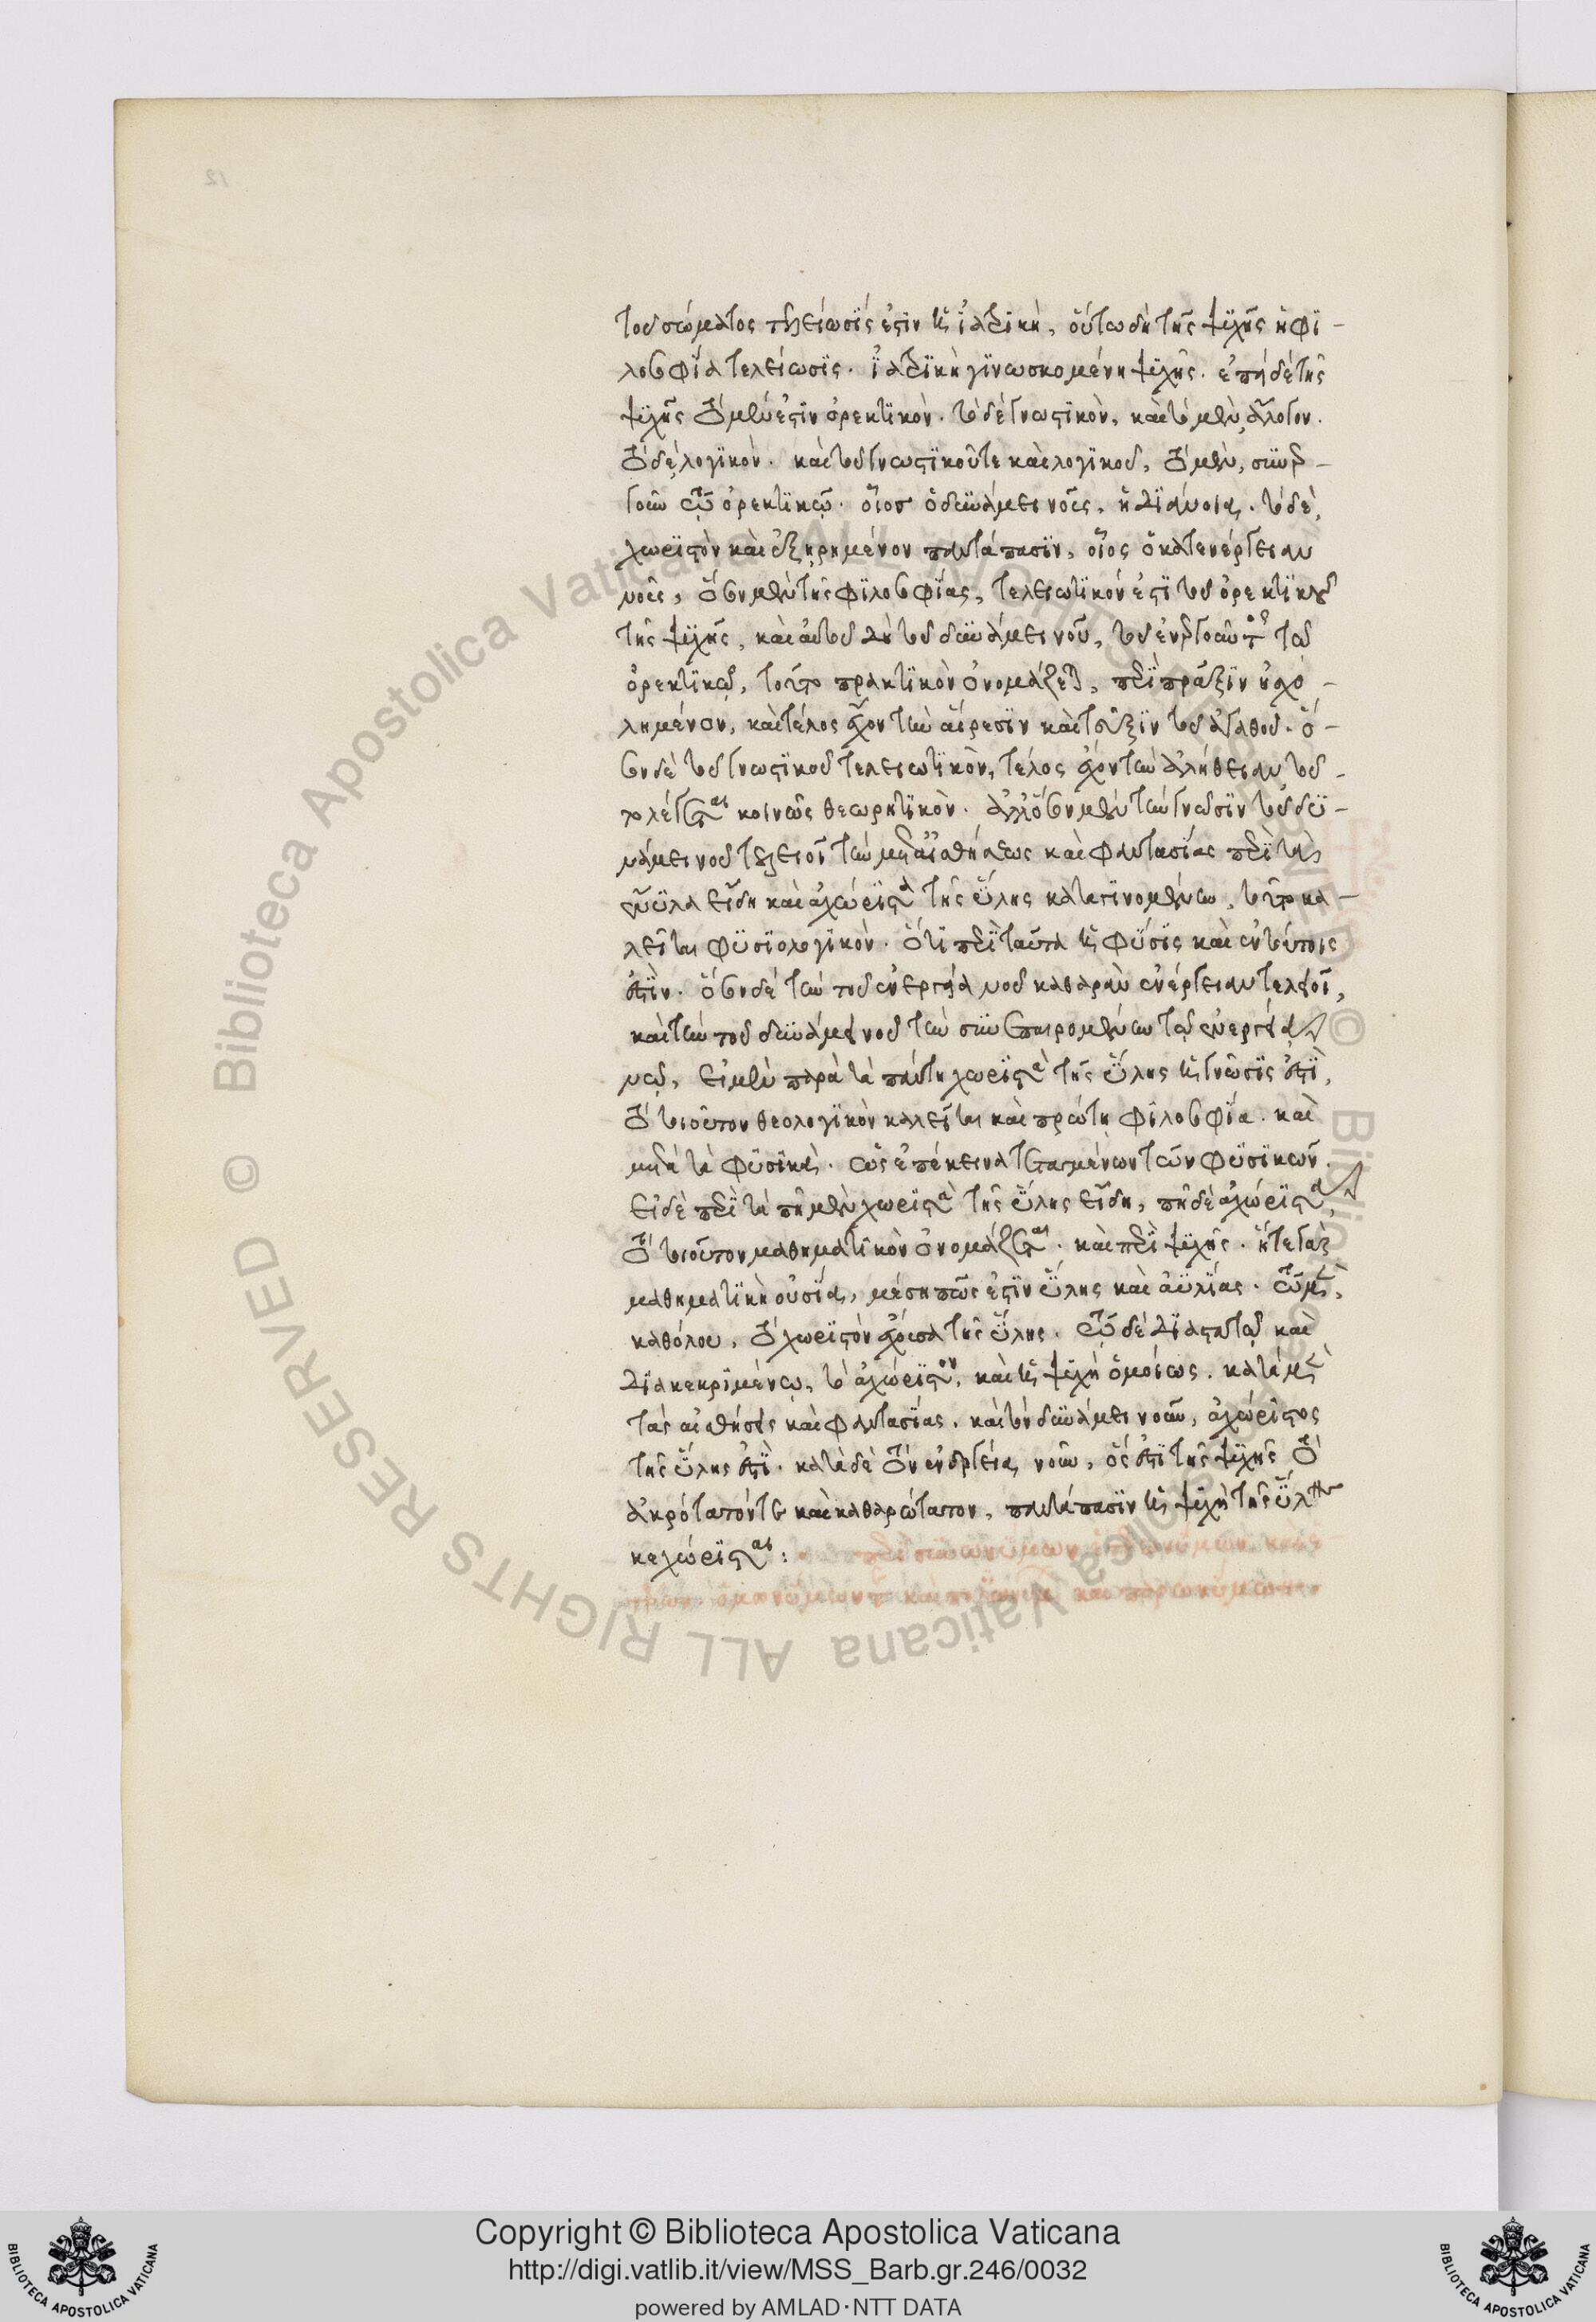 τοῦ σώματος τελείωσίς ἐστιν ἡ ἰατρικὴ, οὕτω δὴ τῆς ψυχῆς ἡ φι-
λοσοφία τελείωσις. ἰατρικὴ γινωσκομένη ψυχῆς. ἐπεὶ δὲ τῆς
ψυχῆς τὸ μέν ἐστιν ὀρεκτικὸν. τὸ δὲ γνωστικὸν, καὶ τὸ μὲν, ἄλογον.
τὸ δὲ, λογικὸν. καὶ τοῦ γνωστικοῦ τε καὶ λογικοῦ, τὸ μὲν, συνερ-
γοῦν τῷ ὀρεκτικῷ. οἷον ὁ δυνάμει νοῦς, ἢ διάνοια. τὸ δὲ,
χωριστὸν καὶ ἐξηρημένον παντάπασιν, οἷος ὁ κατ' ἐνέργειαν
νοῦς, ὅσον μὲν τῆς φιλοσοφίας, τελειωτικόν ἐστι τοῦ ὀρεκτικοῦ
τῆς ψυχῆς, καὶ αὐτοῦ δὴ τοῦ δυνάμει νοῦ, τοῦ ἐνεργοῦντος τῷ
ὀρεκτικῷ, τοῦτο πρακτικὸν ὀνομάζεται, περὶ πρᾶξιν ἠσχο-
λημένον, καὶ τέλος ἔχον τὴν αἵρεσιν καὶ τεῦξιν τοῦ ἀγαθοῦ. ὅ-
σον δὲ τοῦ γνωστικοῦ τελειωτικὸν, τέλος ἔχον τὴν ἀλήθειαν τοῦ-
το λέγεται κοινῶς θεωρητικὸν. ἀλλ' ὅσον μὲν τὴν γνῶσιν τοῦ δυ-
νάμει νοῦ τελειοῖ τὴν μετ' αἰσθήσεως καὶ φαντασίας περὶ τὰ
ἔνυλα εἴδη καὶ ἀχώριστα τῆς ὕλης καταγινομένην, τοῦτο κα-
λεῖται φυσιολογικὸν. ὅτι περὶ ταῦτα ἡ φύσις καὶ ἐν τούτοις
ἐστίν. ὅσον δὲ τὴν τοῦ ἐνεργείᾳ νοῦ καθαρὰν ἐνέργειαν τελειοῖ,
καὶ τὴν τοῦ δυνάμει νοῦ τὴν συνεπαιρομένην τῷ ἐνεργείᾳ
νῷ, εἰ μὲν παρὰ τὰ πάντη χωριστὰ τῆς ὕλης ἡ γνῶσίς ἐστι,
τὸ τοιοῦτον θεολογικὸν καλεῖται καὶ πρώτη φιλοσοφία. καὶ
μετὰ τὰ φυσικὰ. ὡς ἐπέκεινα τεταγμένων τῶν φυσικῶν.
εἰ δὲ περὶ τὰ πῆ μὲν χωριστὰ τῆς ὕλης εἴδη, πῆ δὲ ἀχώριστα,
τὸ τοιοῦτον μαθηματικὸν ὀνομάζεται. καὶ περὶ ψυχῆς. ἥτε γὰρ
μαθηματικὴ οὐσία, μέση πῶς ἐστιν ὕλης καὶ ἀϋλίας. τῷ μὲν
καθόλου, τὸ χωριστὸν ἔχουσα τῆς ὕλης. τῷ δὲ διαστατῷ καὶ
διακεκριμένῳ, τὸ ἀχώριστον, καὶ ἡ ψυχὴ ὁμοίως. κατὰ μὲν
τὰς αἰσθήσεις καὶ φαντασίας. καὶ τὸν δυνάμει νοῦν, ἀχώριστος
τῆς ὕλης ἐστὶ. κατὰ δὲ τὸν ἐνεργείᾳ νοῦν, ὅς ἐστι τῆς ψυχῆς τὸ
ἀκρότατόν τε καὶ καθαρώτατον, παντάπασιν ἡ ψυχὴ τῆς ὕλης
κεχώρισται:
Copyright © Biblioteca Apostolica Vaticana
http://digi.vatlib.it/view/MSS_Barb.gr.246/0032
powered by AMLAD·NTT DATA